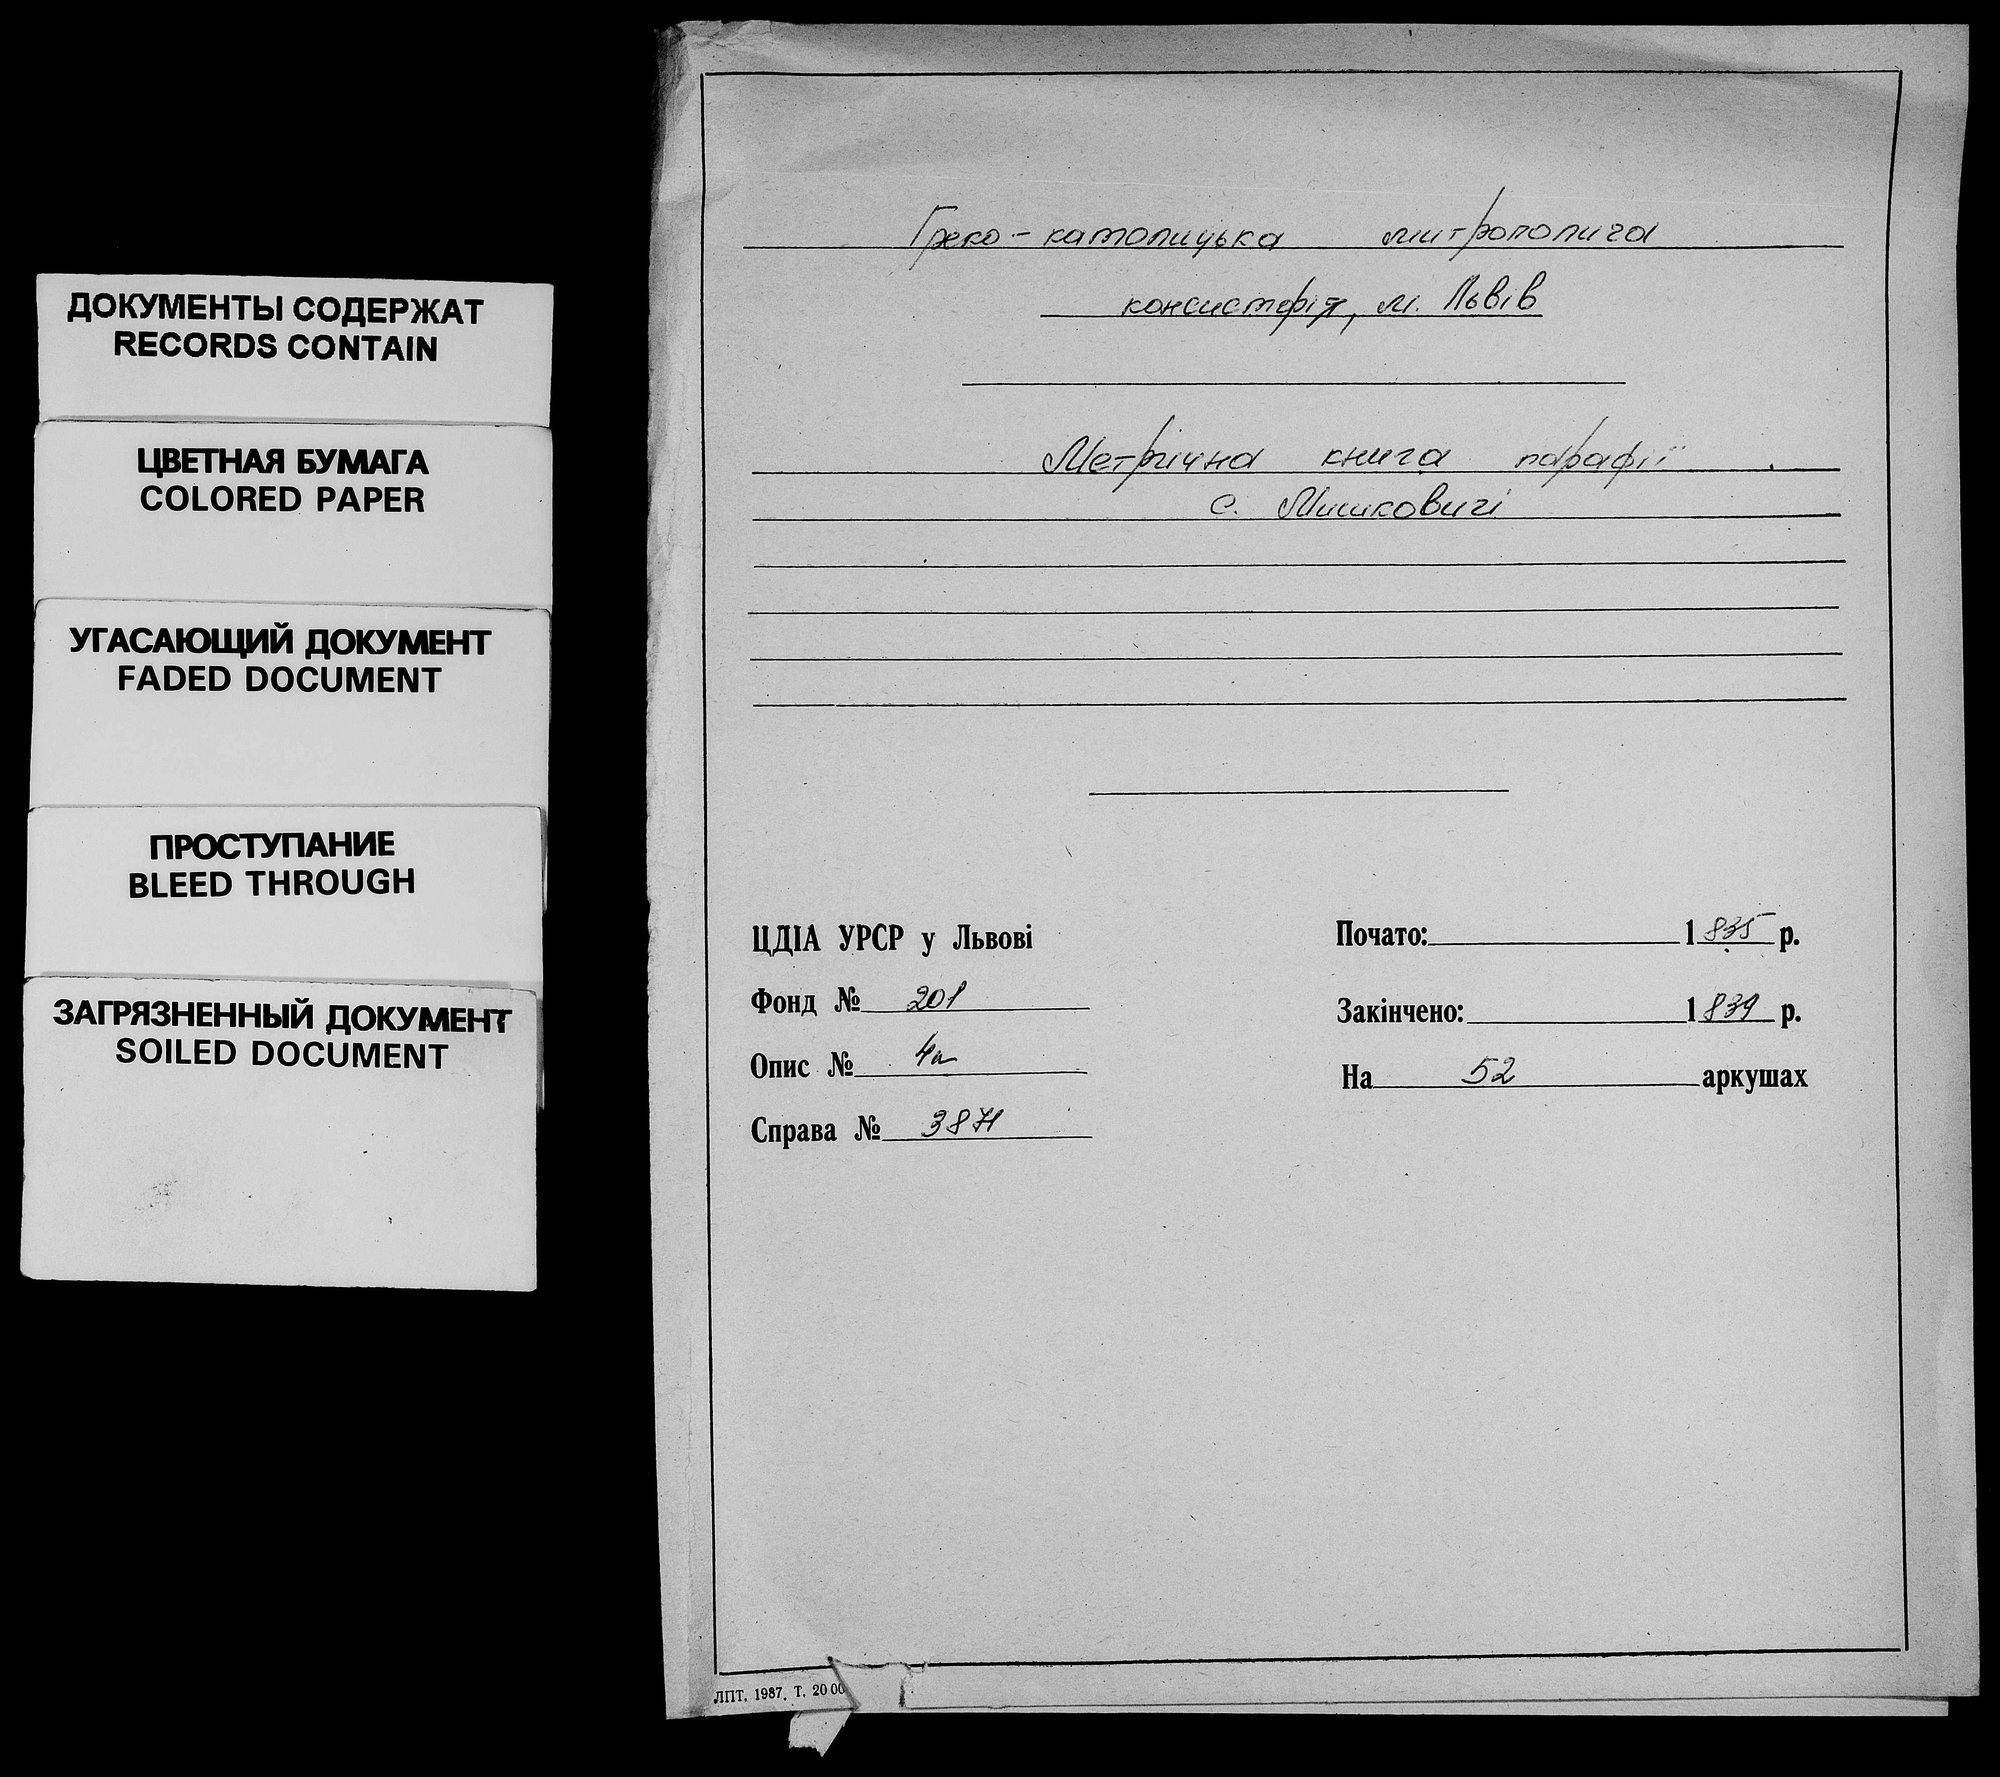 ДОКУМЕНТЫ СОДЕРЖАТ
RECORDS CONTAIN
ЦВЕТНАЯ БУМАГА
COLORED PAPER
УГАСАЮЩИЙ ДОКУМЕНТ
FADED DOCUMENT
ПРОСТУПАНИЕ
BLEED THROUGH
ЗАГРЯЗНЕННЫЙ ДОКУМЕНТ
SOILED DOCUMENT
Греко-католицька митрополича
консисторія, м. Львів
Метрична книга парафії
с. Мишковичі
ЦДІА УРСР у Львові
Фонд № 201
Опис № 4а
Справа № 3871
Почато: 1835 р.
Закінчено: 1839 р.
На 52 аркушах
ЛПТ. 1987. Т. 2000